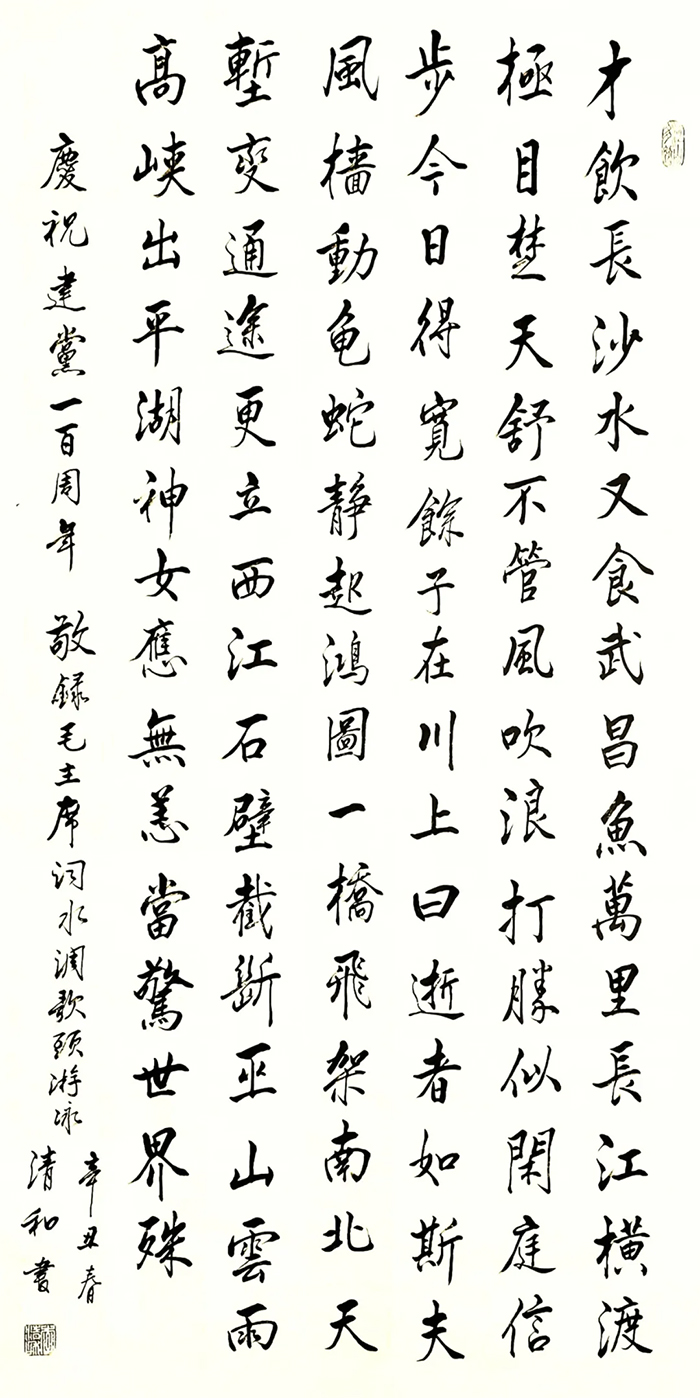 才飲長沙水又食武昌魚萬里長江橫渡
極目楚天舒不管風吹浪打勝似閑庭信
步今日得寬餘子在川上曰逝者如斯夫
風檣動龟蛇靜起鴻圖一橋飛架南北天
塹变通途更立西江石壁截斷巫山雲雨
高峽出平湖神女應無恙當驚世界殊
慶祝建黨一百周年 敬録毛主席词水调歌頭游泳
辛丑春
清和書